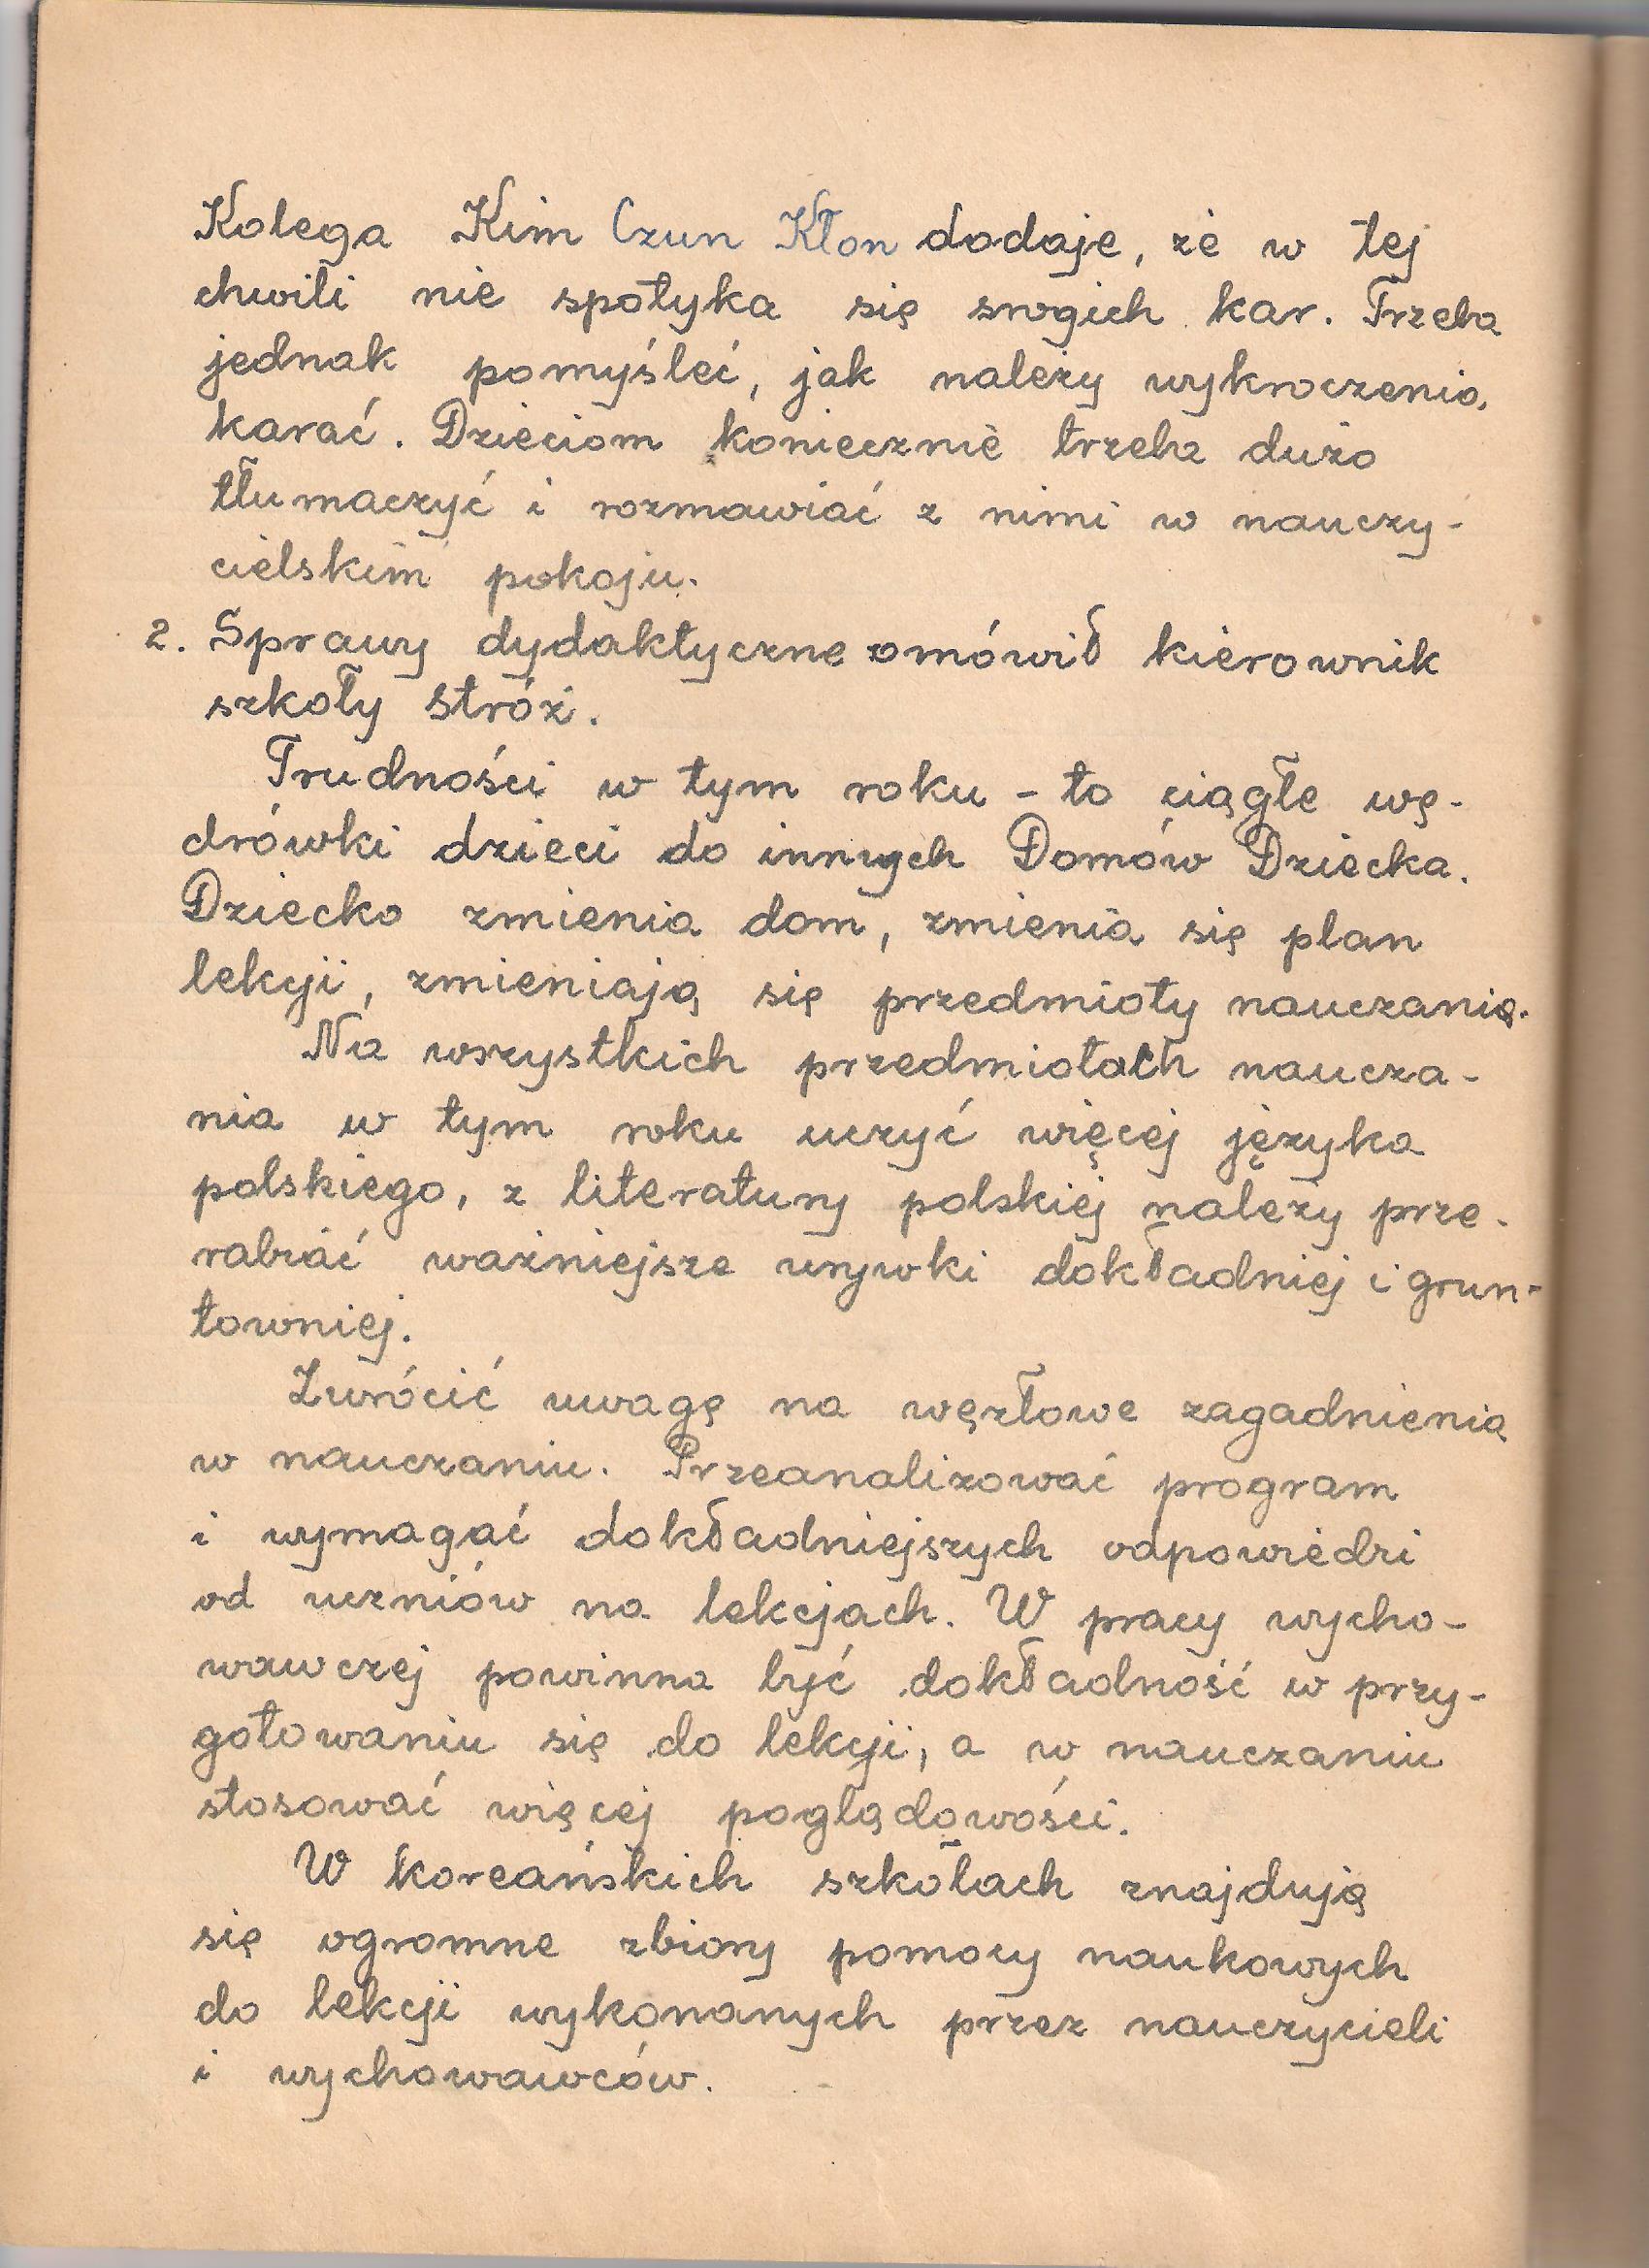 Kolega Kim Czun Kłon dodaje, że w tej
chwili nie spotyka się srogich kar. Trzeba
jednak pomyśleć, jak należy wykroczenia
karać. Dzieciom koniecznie trzeba dużo
tłumaczyć i rozmawiać z nimi w nauczy-
cielskim pokoju.
2. Sprawy dydaktyczne omówił kierownik
szkoły Stróż.
Trudności w tym roku - to ciągłe wę-
drówki dzieci do innych Domów Dziecka.
Dziecko zmienia dom, zmienia się plan
lekcji, zmieniają się przedmioty nauczania.
Na wszystkich przedmiotach naucza-
nia w tym roku uczyć więcej języka
polskiego, z literatury polskiej należy prze-
rabiać ważniejsze urywki dokładniej i grun-
towniej.
Zwrócić uwagę na węzłowe zagadnienia
w nauczaniu. Przeanalizować program
i wymagać dokładniejszych odpowiedzi
od uczniów na lekcjach. W pracy wycho-
wawczej powinna być dokładność w przy-
gotowaniu się do lekcji, a w nauczaniu
stosować więcej poglądowości.
W koreańskich szkołach znajdują
się ogromne zbiory pomocy naukowych
do lekcji wykonanych przez nauczycieli
i wychowawców.